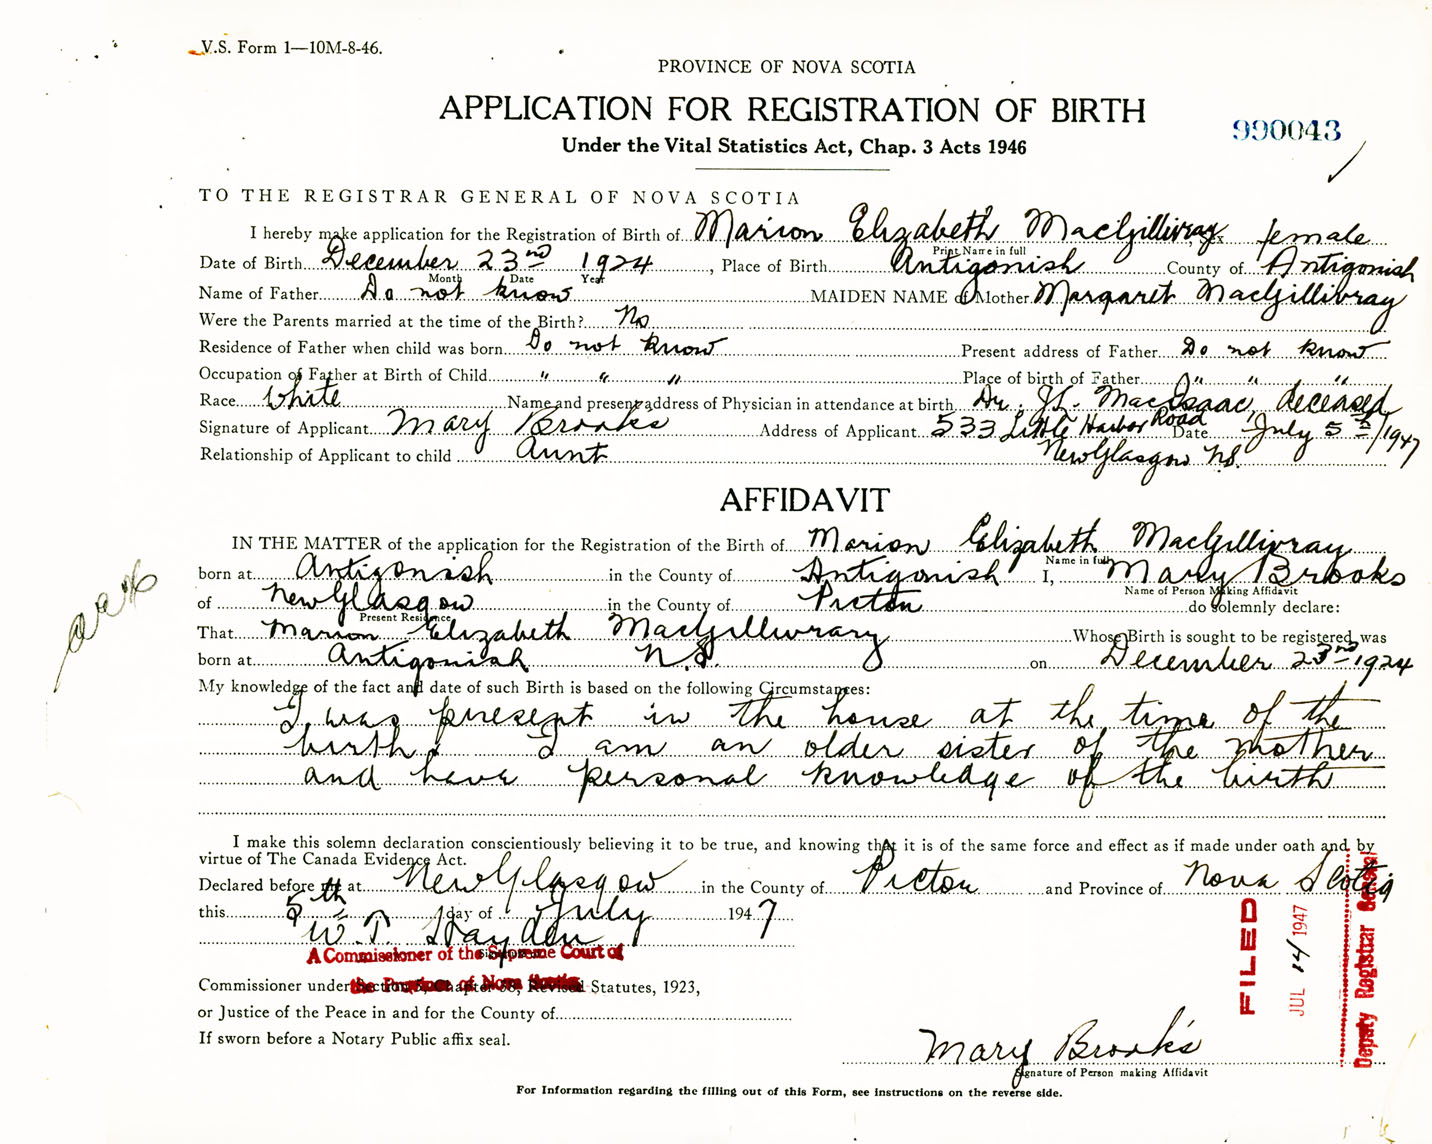 V.S. Form 1—10M-8-46.
PROVINCE OF NOVA SCOTIA
APPLICATION FOR REGISTRATION OF BIRTH
990043
Under the Vital Statistics Act, Chap. 3 Acts 1946
TO THE REGISTRAR GENERAL OF NOVA SCOTIA
I hereby make application for the Registration of Birth of Marion Elizabeth MacGillivray female
Print Name in full
Date of Birth December 23nd 1924, Place of Birth Antigonish County of Antigonish
Month Date Year
Name of Father Do not know MAIDEN NAME of Mother Margaret MacGillivray
Were the Parents married at the time of the Birth? No
Residence of Father when child was born Do not know Present address of Father Do not know
Occupation of Father at Birth of Child " " " Place of birth of Father " " "
Race White Name and present address of Physician in attendance at birth Dr. MacIsaac, deceased
Signature of Applicant Mary Brooks Address of Applicant 533 Little Harbor Road Date July 5th/1947
Relationship of Applicant to child Aunt New Glasgow N.S.
AFFIDAVIT
IN THE MATTER of the application for the Registration of the Birth of Marion Elizabeth MacGillivray
Name in full
born at Antigonish in the County of Antigonish I, Mary Brooks
Name of Person Making Affidavit
of New Glasgow in the County of Picton do solemnly declare:
Present Residence
That Marion Elizabeth MacGillivrary Whose Birth is sought to be registered was
born at Antigonish N.S. on December 23nd 1924
My knowledge of the fact and date of such Birth is based on the following Circumstances:
I was present in the house at the time of the
birth. I am an older sister of the mother
and have personal knowledge of the birth
I make this solemn declaration conscientiously believing it to be true, and knowing that it is of the same force and effect as if made under oath and by
virtue of The Canada Evidence Act.
Declared before me at New Glasgow in the County of Picton and Province of Nova Scotia
this 5th day of July 1947
W. T. Hayden
A Commissioner of the Supreme Court of
the Province of Nova Scotia
Commissioner under Section 5, Chapter 38, Revised Statutes, 1923,
or Justice of the Peace in and for the County of
If sworn before a Notary Public affix seal.
FILED
JUL 14 1947
Deputy Registrar General
Mary Brooks
Signature of Person making Affidavit
For Information regarding the filling out of this Form, see instructions on the reverse side.